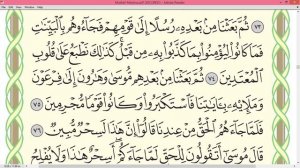 ٧٣ ثُمَّ بَعَثْنَا مِنۢ بَعْدِهِۦ رُسُلًا إِلَىٰ قَوْمِهِمْ فَجَآءُوهُم بِٱلْبَيِّنَٰتِ
فَمَا كَانُوا۟ لِيُؤْمِنُوا۟ بِمَا كَذَّبُوا۟ بِهِۦ مِن قَبْلُ ۚ كَذَٰلِكَ نَطْبَعُ عَلَىٰ قُلُوبِ
ٱلْمُعْتَدِينَ ٧٤ ثُمَّ بَعَثْنَا مِنۢ بَعْدِهِم مُّوسَىٰ وَهَٰرُونَ إِلَىٰ فِرْعَوْنَ
وَمَلَإِي۟هِۦ بِـَٔايَٰتِنَا فَٱسْتَكْبَرُوا۟ وَكَانُوا۟ قَوْمًا مُّجْرِمِينَ ٧٥
فَلَمَّا جَآءَهُمُ ٱلْحَقُّ مِنْ عِندِنَا قَالُوٓا۟ إِنَّ هَٰذَا لَسِحْرٌ مُّبِينٌ ٧٦
قَالَ مُوسَىٰٓ أَتَقُولُونَ لِلْحَقِّ لَمَّا جَآءَكُمْ ۖ أَسِحْرٌ هَٰذَا وَلَا يُفْلِحُ